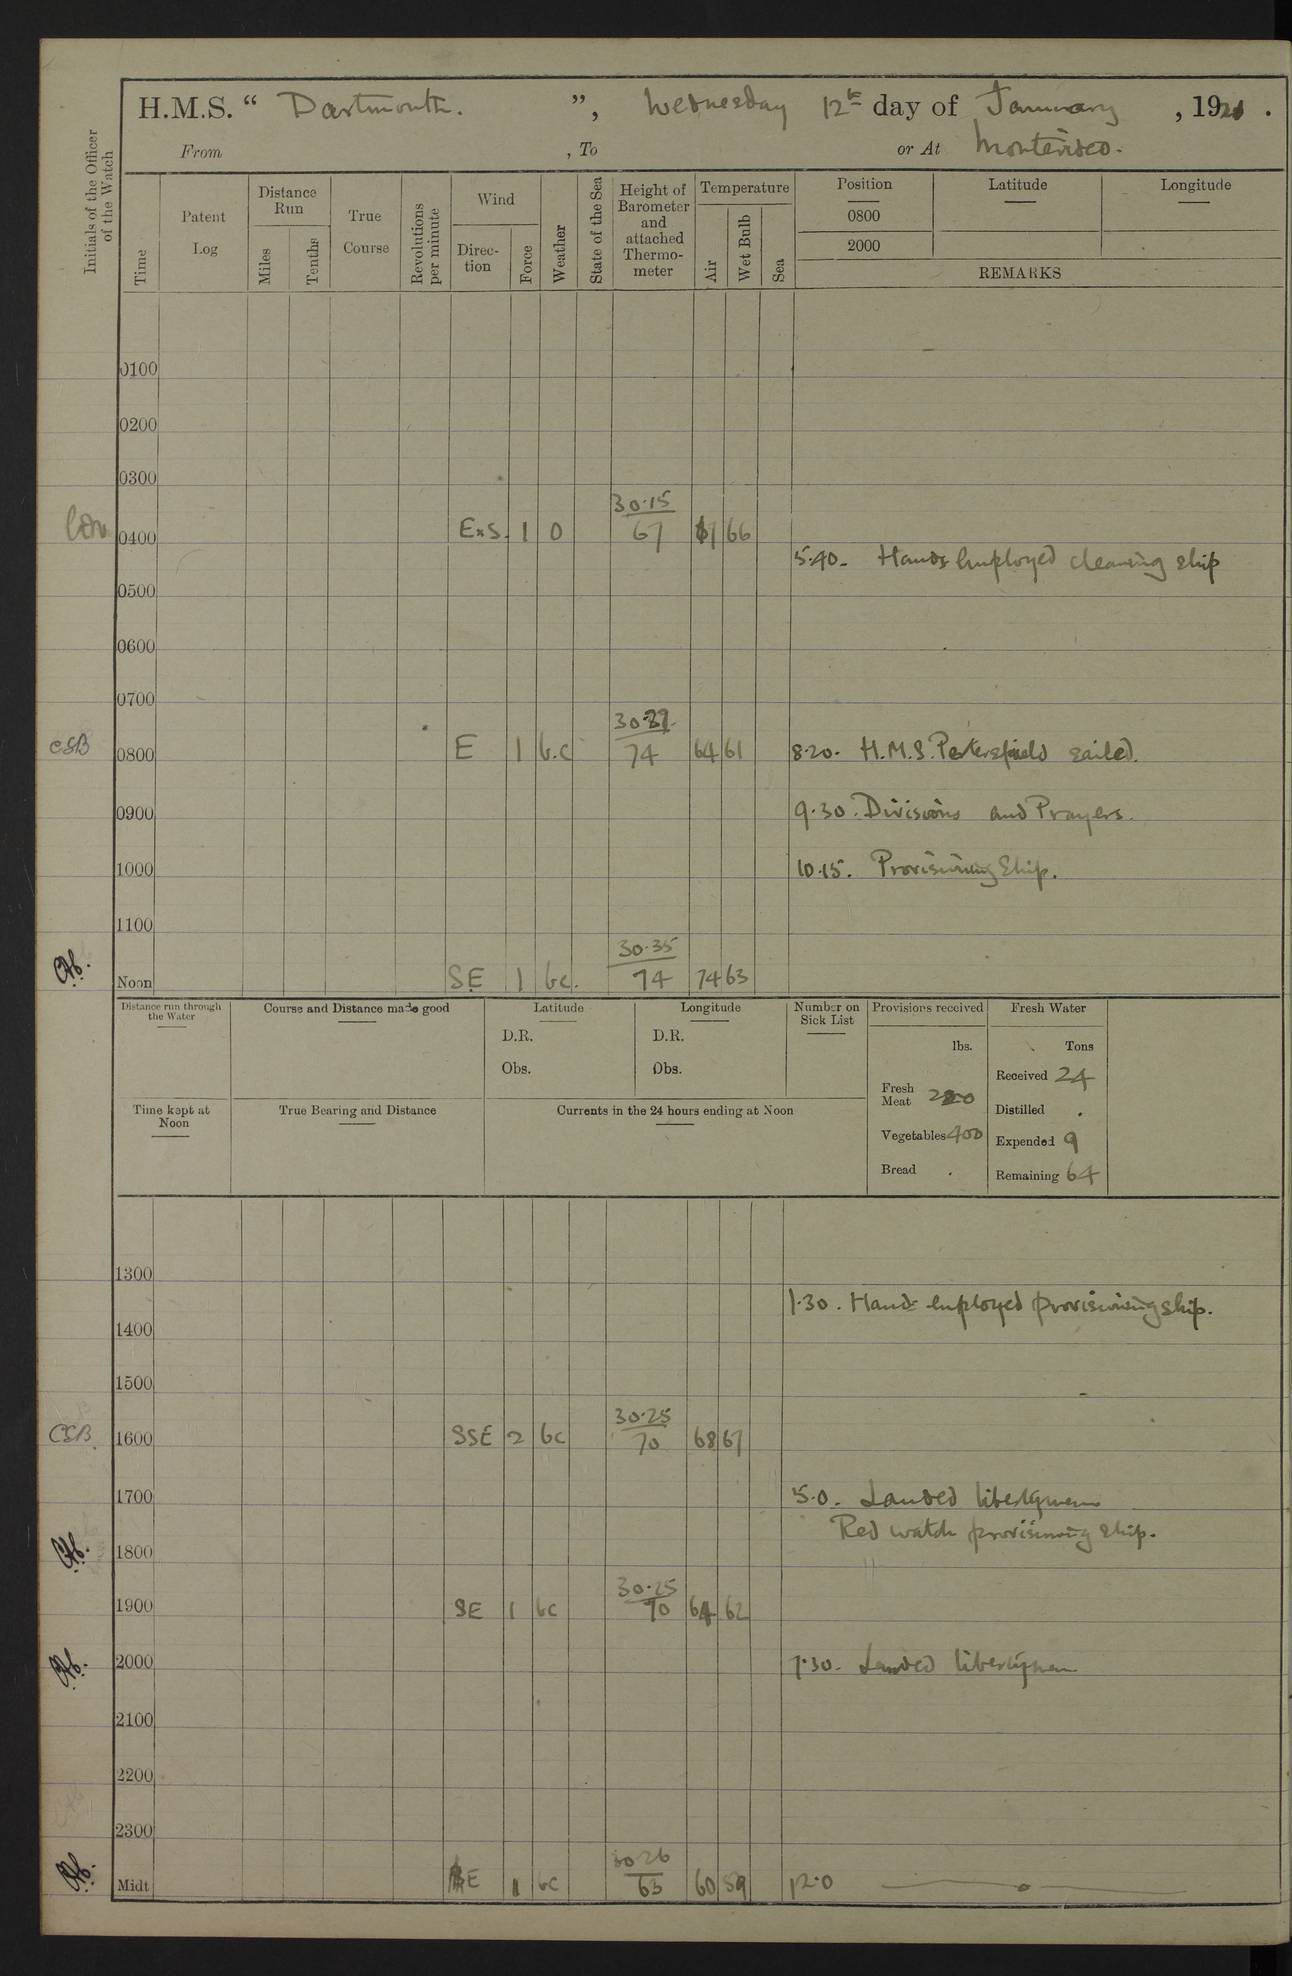 H.M.S. “ Dartmouth. ”, Wednesday 12th day of January , 1921 .
From , To or At Montevideo.
Initials of the Officer of the Watch
Time
Patent Log
Distance Run
Miles
Tenths
True Course
Revolutions per minute
Wind
Direc-tion
Force
Weather
State of the Sea
Height of Barometer and attached Thermo-meter
Temperature
Air
Wet Bulb
Sea
Position Latitude Longitude
0800
2000
REMARKS
0100
0200
0300
30.15
0400 E x S. 1 0 67 67 66
5.40. Hands Employed cleaning ship
0500
0600
0700
CSB 0800 E 1 b.c 74 64 61 8.20. H.M.S. Petersfield sailed.
0900 9.30. Divisions and Prayers.
1000 10.15. Provisioning Ship.
1100
30.35
Noon SE 1 bc. 74 74 63
Distance run through the Water
Course and Distance made good
Latitude
D.R.
Obs.
Longitude
D.R.
Obs.
Number on Sick List
Provisions received
lbs.
Fresh Meat
Vegetables 400
Bread .
Fresh Water
Tons
Received 24
Distilled .
Expended 9
Remaining 64
Time kept at Noon
True Bearing and Distance
Currents in the 24 hours ending at Noon
1300
1.30. Hands employed provisioning ship.
1400
1500
30.25
CSB 1600 SSE 2 bc 70 68 67
1700 5.0. Landed libertymen
Red watch provisioning ship.
1800
30.25
1900 SE 1 bc 70 64 62
2000 7.30. Landed libertymen
2100
2200
2300
30 26
Midt E 1 bc 63 60 59 12.0